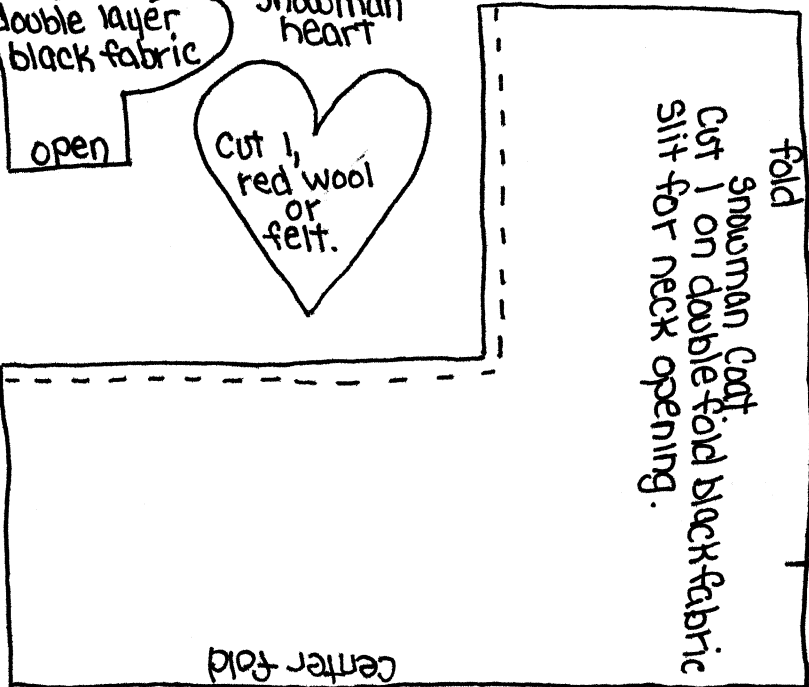 double layer
black fabric
open
snowman
heart
Cut 1,
red wool
or
felt.
fold
Snowman Coat
Cut 1 on double fold black fabric
Slit for neck opening.
center fold